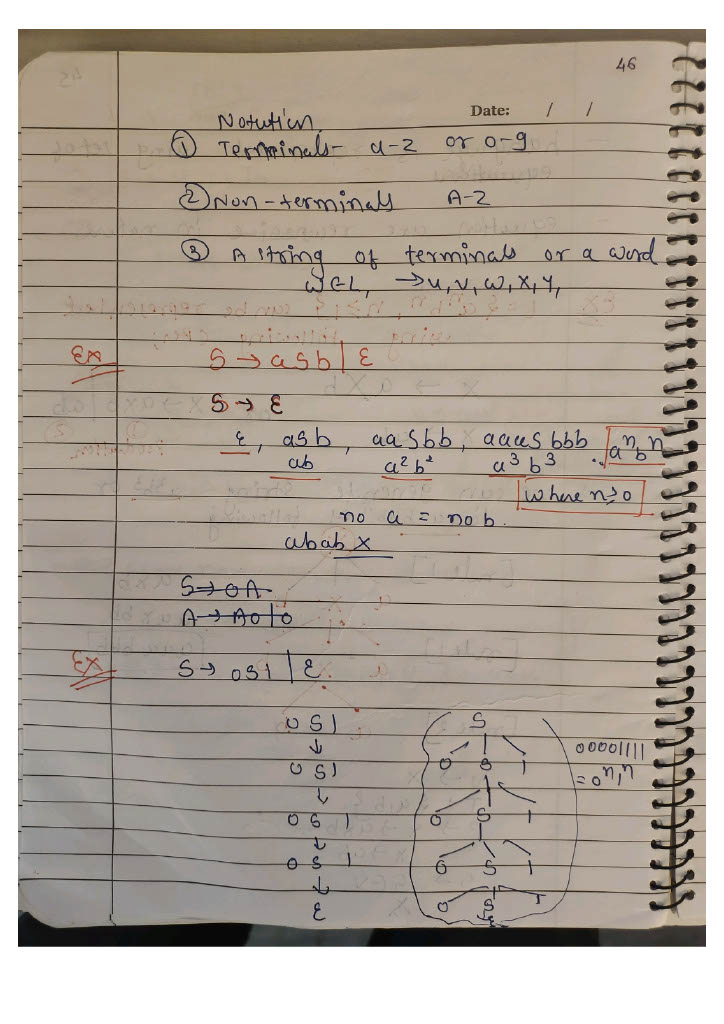 46
Date: / /
Notation
① Terminals- a-z or 0-9
② Non-terminals A-Z
③ A string of terminals or a word
w∈L, →u, v, w, x, y,
Ex S → aSb | ε
S → ε
ε, aSb, aaSbb, aaaSbbb .. aⁿbⁿ
ab a²b² a³b³
where n≥0
no a = no b.
abab X
S→0A
A→A0|0
Ex S→ 0S1 | ε
0 S 1 S
↓
0 S 1 0 S 1 00001111
↓ = 0ⁿ1ⁿ
0 S 1 0 S 1
↓
0 S 1 0 S 1
↓
ε 0 S 1
ε